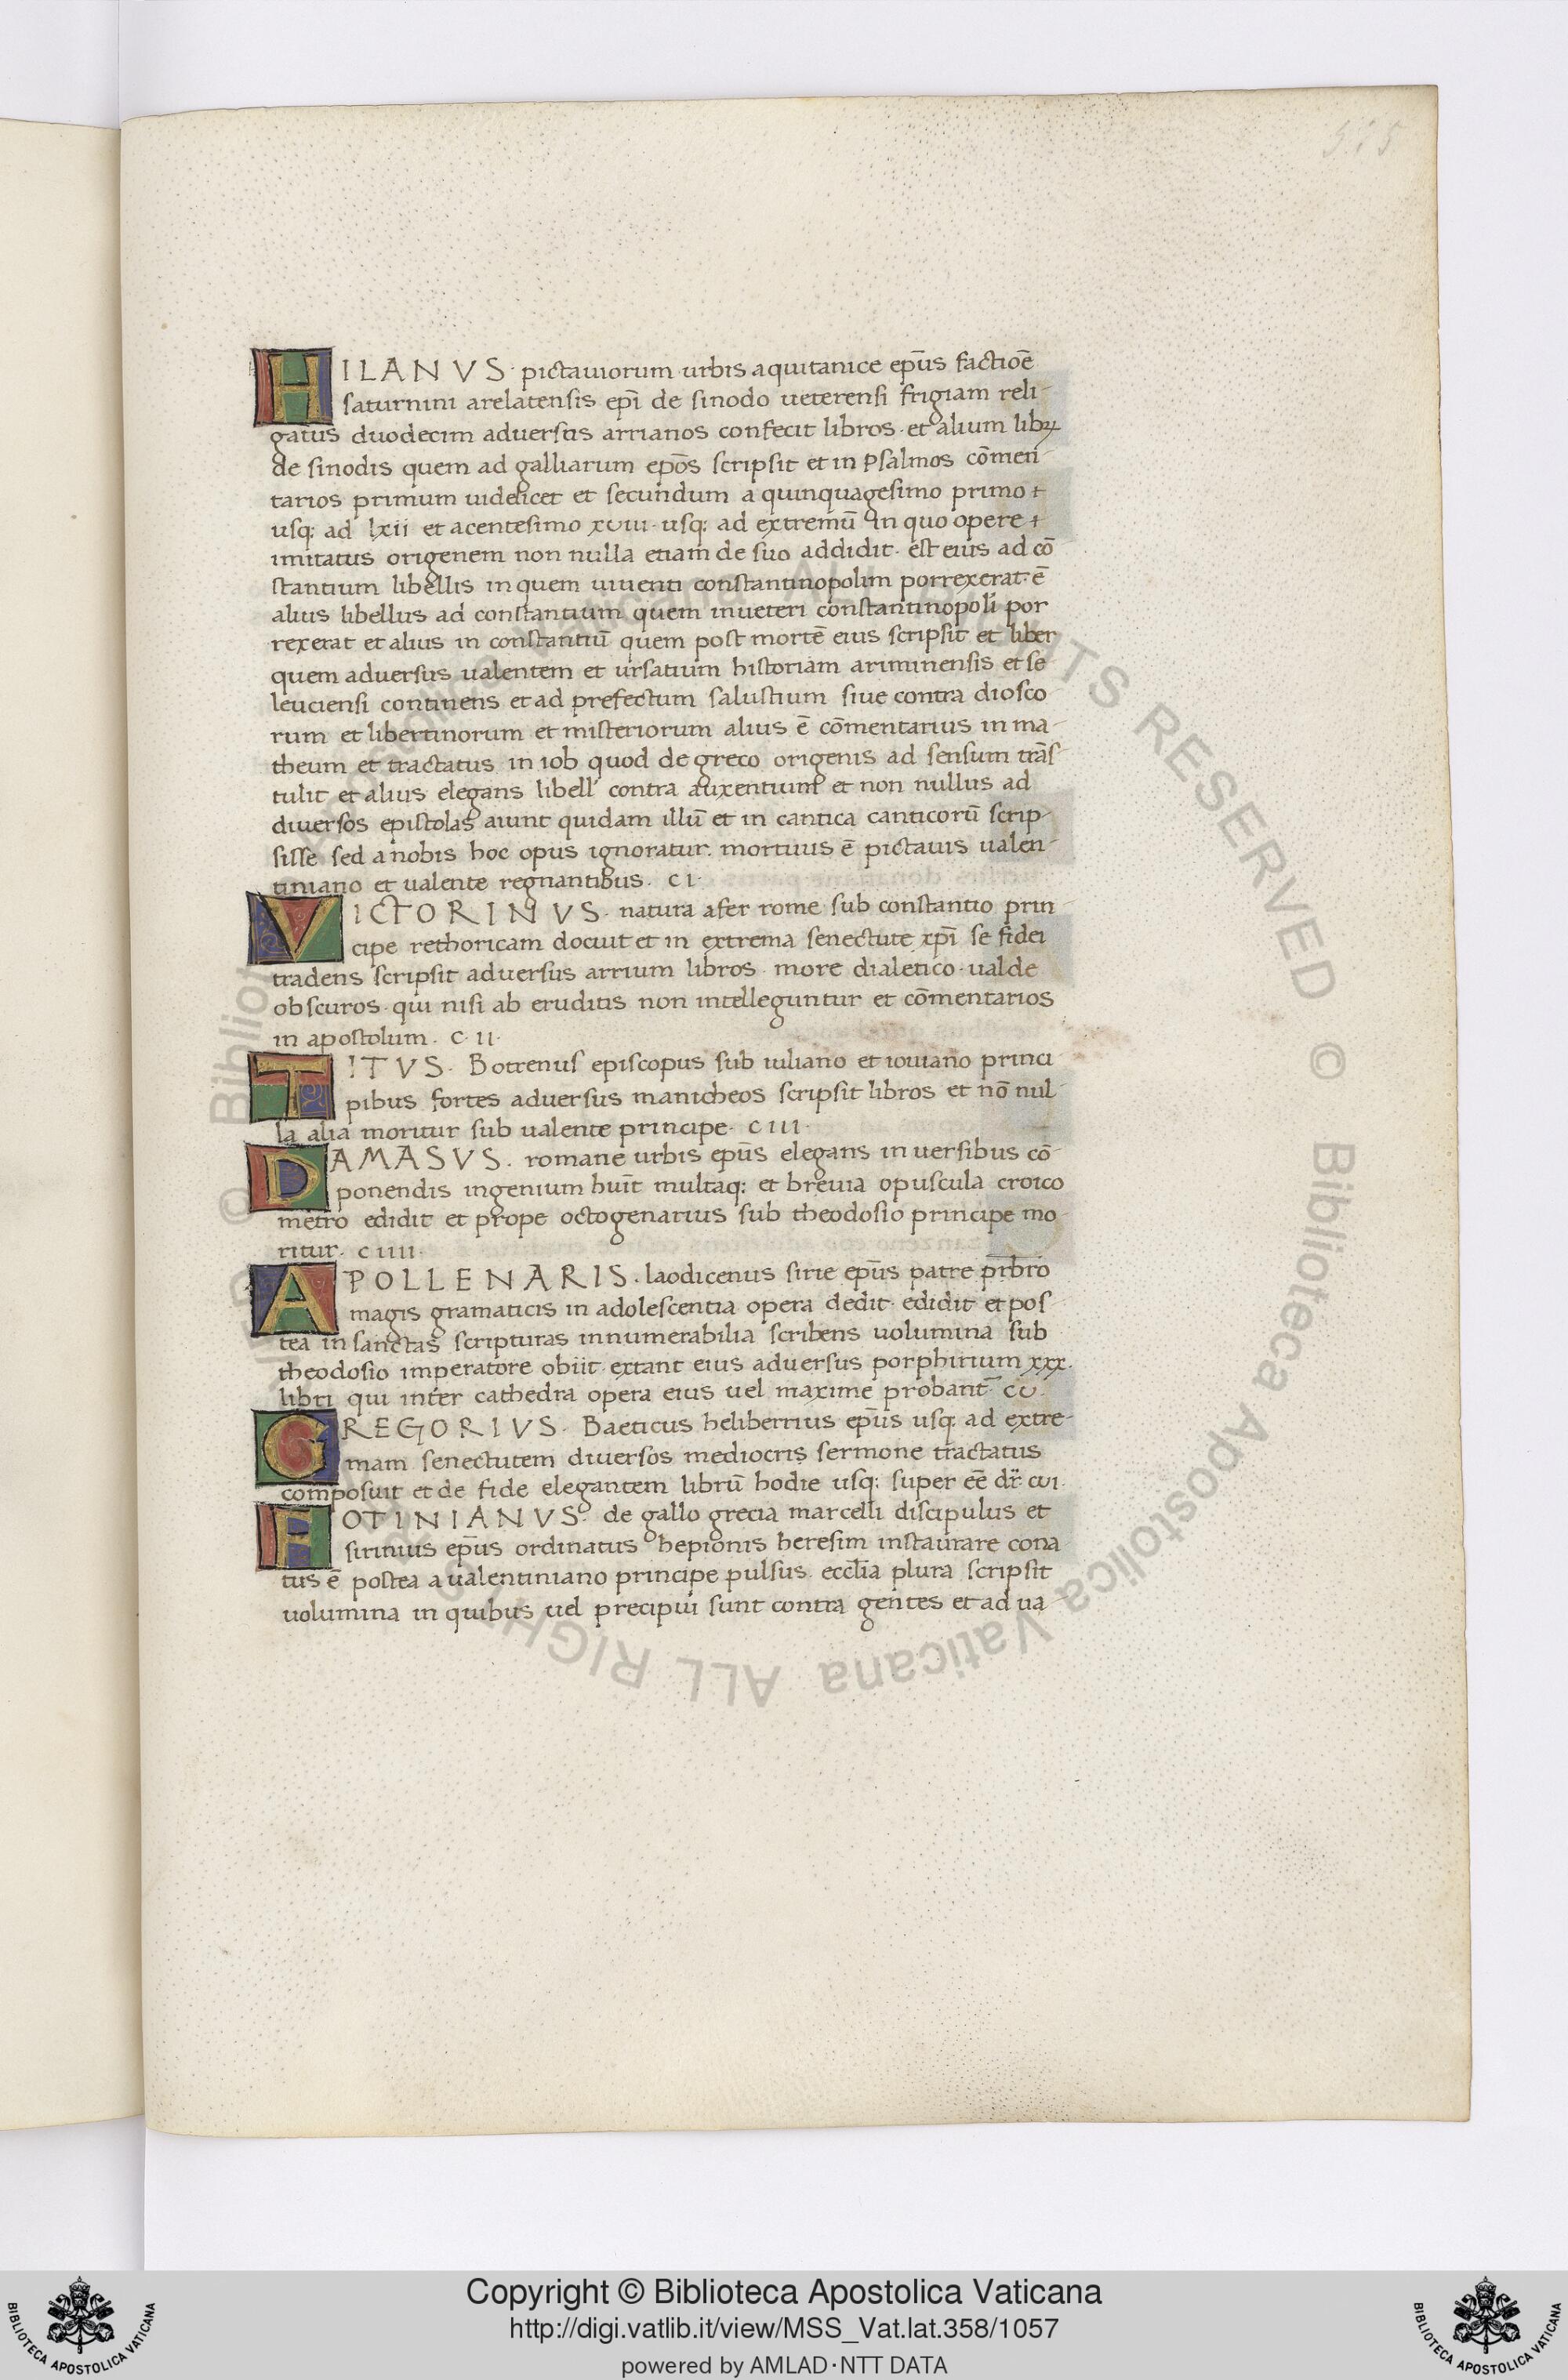 515
HILANVS· pictauiorum urbis aquitanice ep̄us factiōe
saturnini arelatensis ep̄i de sinodo ueterensi frigiam reli-
gatus duodecim aduersus arrianos confecit libros· et alium libꝝ
de sinodis quem ad galliarum ep̄os scripsit et in Psalmos cōmen-
tarios primum uidelicet et secundum a quinquagesimo primo +
usq: ad lxii et acentesimo xviii· usq: ad extremū in quo opere +
imitatus origenem non nulla etiam de suo addidit· est eius ad cō
stantium libellis in quem uiuenti constantinopolim porrexerat· ē
alius libellus ad constantium quem inueteri constantinopoli por
rexerat et alius in constantiū quem post mortē eius scripsit et liber
quem aduersus ualentem et ursatium historiam ariminensis et se
leuciensi continens et ad prefectum salustium siue contra diosco
rum et libertinorum et misteriorum alius ē cōmentarius in ma-
theum et tractatus in iob quod de greco origenis ad sensum trās-
tulit et alius elegans libell' contra auxentium et non nullus ad
diuersos epistolas aiunt quidam illū et in cantica canticorū scrip-
sisse sed a nobis hoc opus ignoratur. mortuus ē pictauis ualen-
tiniano et ualente regnantibus. CI·
VICTORINVS· natura afer rome sub constantio prin
cipe rethoricam docuit et in extrema senectute xp̄i se fidei
tradens scripsit aduersus arrium libros· more dialetico· ualde
obscuros· qui nisi ab eruditis non intelleguntur et cōmentarios
in apostolum. C·II·
TITVS· Botrenus episcopus sub iuliano et iouiano princi
pibus fortes aduersus manicheos scripsit libros et nō nul-
la alia moritur sub ualente principe· CIII·
DAMASVS. romane urbis ep̄us elegans in uersibus cō-
ponendis ingenium huīt multaq: et breuia opuscula croico
metro edidit et prope octogenarius sub theodosio principe mo-
ritur. CIIII·
APOLLENARIS. laodicenus sirie ep̄us patre pr̄bro
magis gramaticis in adolescentia opera dedit· edidit et pos-
tea in sanctas scripturas innumerabilia scribens uolumina sub
theodosio imperatore obiit· extant eius aduersus porphirium xxx·
libri qui inter cathedra opera eius uel maxime probant̄ CV·
GREGORIVS· Baeticus heliberrius ep̄us usq: ad extre-
mam senectutem diuersos mediocris sermone tractatus
composuit et de fide elegantem librū hodie usq: super eē dr̄· CVI·
FOTINIANVS· de gallo grecia marcelli discipulus et
sirinus ep̄us ordinatus hepionis heresim instaurare cona
tus ē postea a ualentiniano principe pulsus eccl̄ia plura scripsit
uolumina in quibus uel precipui sunt contra gentes et ad ua
© Biblioteca Apostolica Vaticana ALL RIGHTS RESERVED
Copyright © Biblioteca Apostolica Vaticana
http://digi.vatlib.it/view/MSS_Vat.lat.358/1057
powered by AMLAD·NTT DATA
BIBLIOTECA APOSTOLICA VATICANA
BIBLIOTECA APOSTOLICA VATICANA